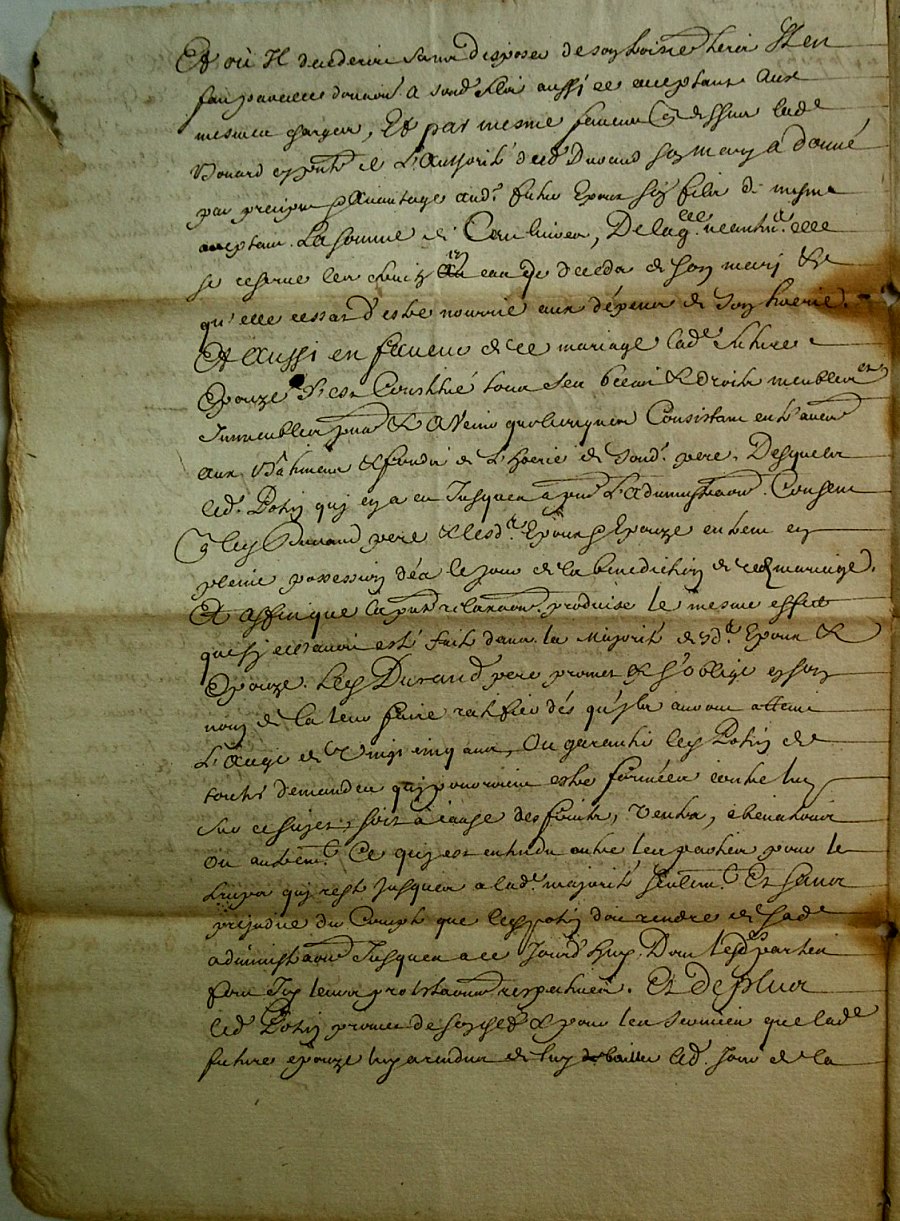 Et où Il decederoit sans disposer de son hoirie herir Il en
fait pareille donnaõn a sond. filz aussi ce acceptant aux
mesmes charges, Et par mesme faveur que dessus lade
Douard espouse de L'authorité dud Durand son mary a donné
par preciput & avantage aud. futur Epoux son filz de mesme
acceptant. La somme de Cent livres, De laqlle neantmt. elle
se reserve les fruitz en cas de decedz de son mari &
qu'elle cessat d'estre nourrie aux dépens de son hoerie.
Et Aussi en faveur de ce mariage lade future
Epouze s'est Constitué tous ses biens & droits meubles et
Immeubles pnts & A Venir quelconques Consistant en L'avoir
aux Bâtimens & fondz de L'hoerie de sond. pere. Desquels
led. Potin qui en a eu Jusques a pnt L'Administraõn. Consent
que leys Durand pere & lesd. Epoux & Epouze entrent en
pleine possession dés le jour de la benediction de ced mariage.
Et Affin que la pnt relaxaõn. produise le mesme effect
que sy elle avoit esté faite dans la Majorité desd. Epoux &
Epouze. Leys Durand pere promet & s'oblige en son
nom de la leur faire ratifier dés qu'ils auront atteint
L'Aage de Vingt cinq ans, Ou garantir leys Potin de
toutes demandes qui pourroient estre formées contre luy
sur ce sujet, soit à cause des fruits, Ventes,
Ou autremt. Ce qui est entendu entre les parties pour le
temps qui reste Jusques a lade majorité seulemt. Et sans
préjudice du Compte que leys Potin doit rendre de sade
administraõn Jusques a ce Jourd'huy. Dont lesd parties
font Icy leurs protestaõns respectives. Et De plus
led. Potin promet de son chef & pour les services que lade
future epouze luy a rendus de luy bailler led. Jour de la